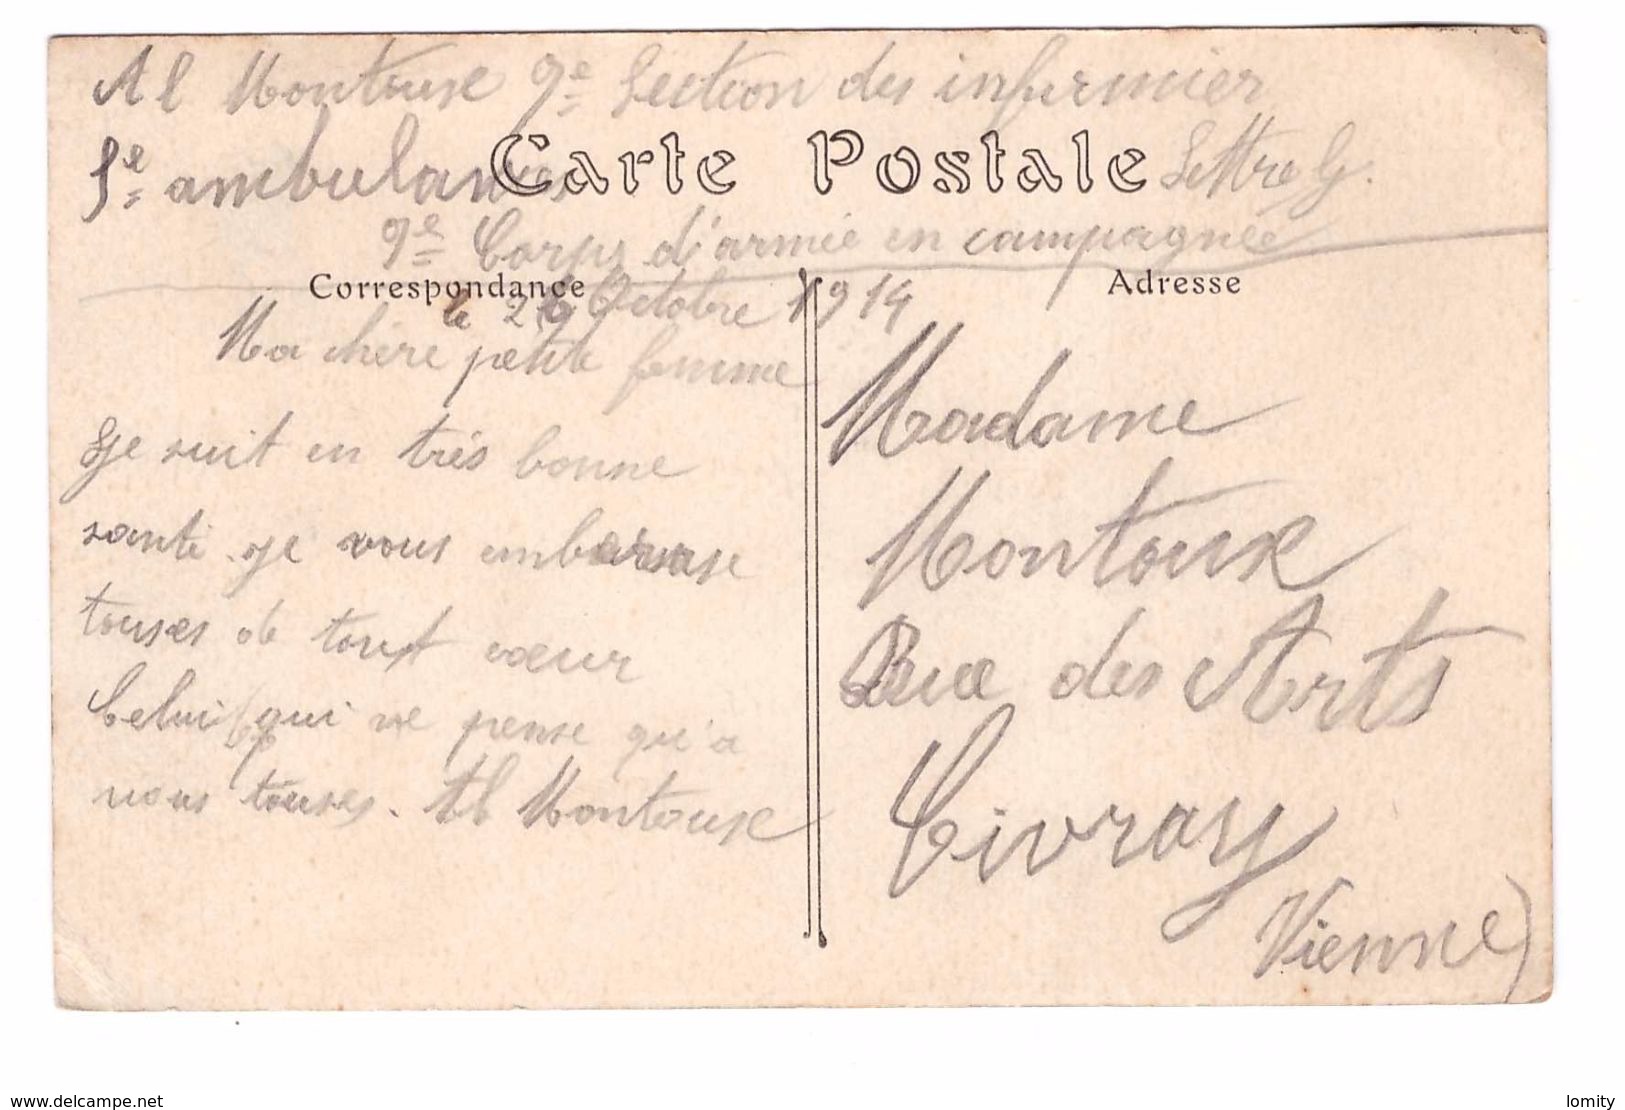 Al Montoux 9e Section des infirmier
5e ambulance Lettre G.
Carte Postale
9e Corps d'armée en campagnée
Correspondance
Adresse
le 26 Octobre 1914
Ma chère petite femme
Je suit en très bonne
santé je vous embarasse
touses de tout cœur
Celui qui ne pense qu'a
vous touses. Al Montoux
Madame
Montoux
Rue des Arts
Civray
Vienne)
www.delcampe.net
lomity